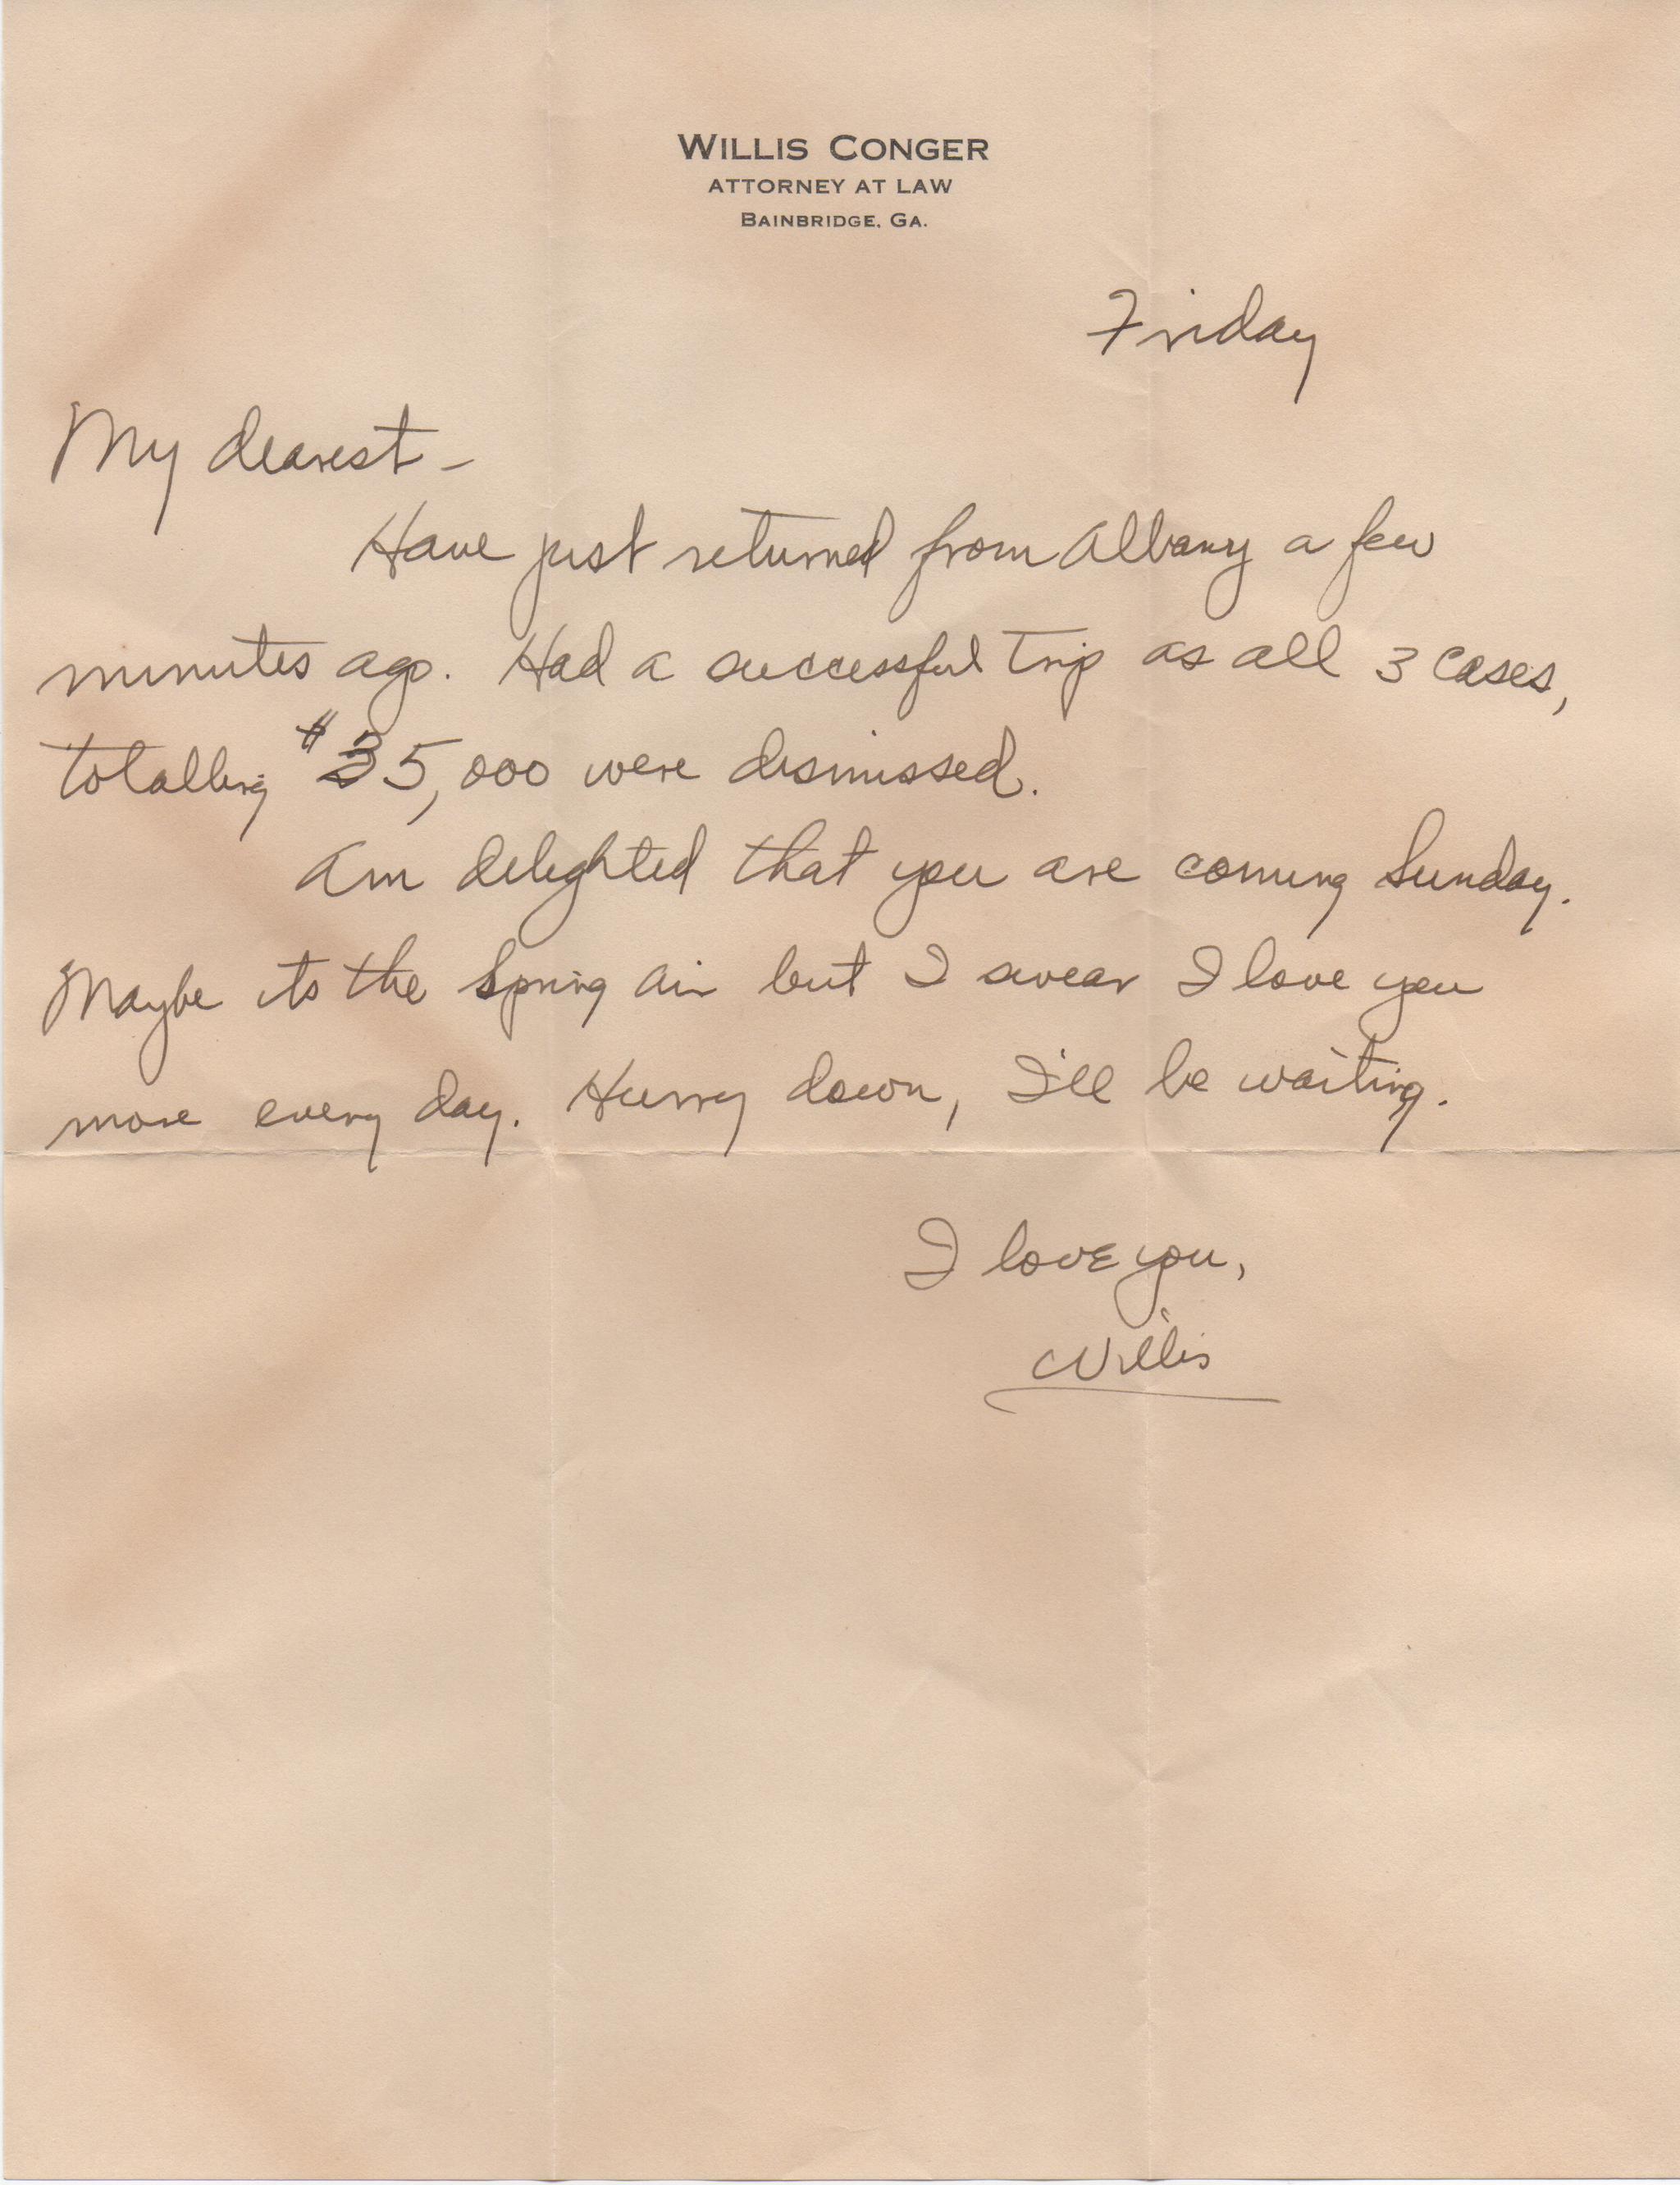 WILLIS CONGER
ATTORNEY AT LAW
BAINBRIDGE, GA.
Friday
My dearest -
Have just returned from Albany a few
minutes ago. Had a successful trip as all 3 cases,
totalling $35,000 were dismissed.
Am delighted that you are coming Sunday.
Maybe its the Spring air but I swear I love you
more every day. Hurry down, I'll be waiting.
I love you,
Willis